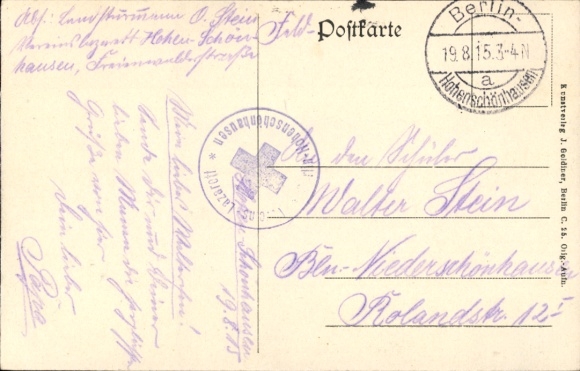 Abs: Landsturmmann O. Stein
Vereinslazarett Hohen-Schön-
hausen, Freienwalderstraße
Feld-
Postkarte
Berlin-
19.8.15.3-4N
a
Hohenschönhausen
Lazarett * Hohenschönhausen
Hohen-Schönhausen
19.8.15
Mein liebes Walterchen!
Sende dir und deiner
lieben Mama die herzlichsten
Grüße von
Dein lieber
Papa
An den Schüler
Walter Stein
Bln-Niederschönhausen
Rolandstr. 12 I
Kunstverlag J. Goldiner, Berlin C. 25. Orig.-Aufn.